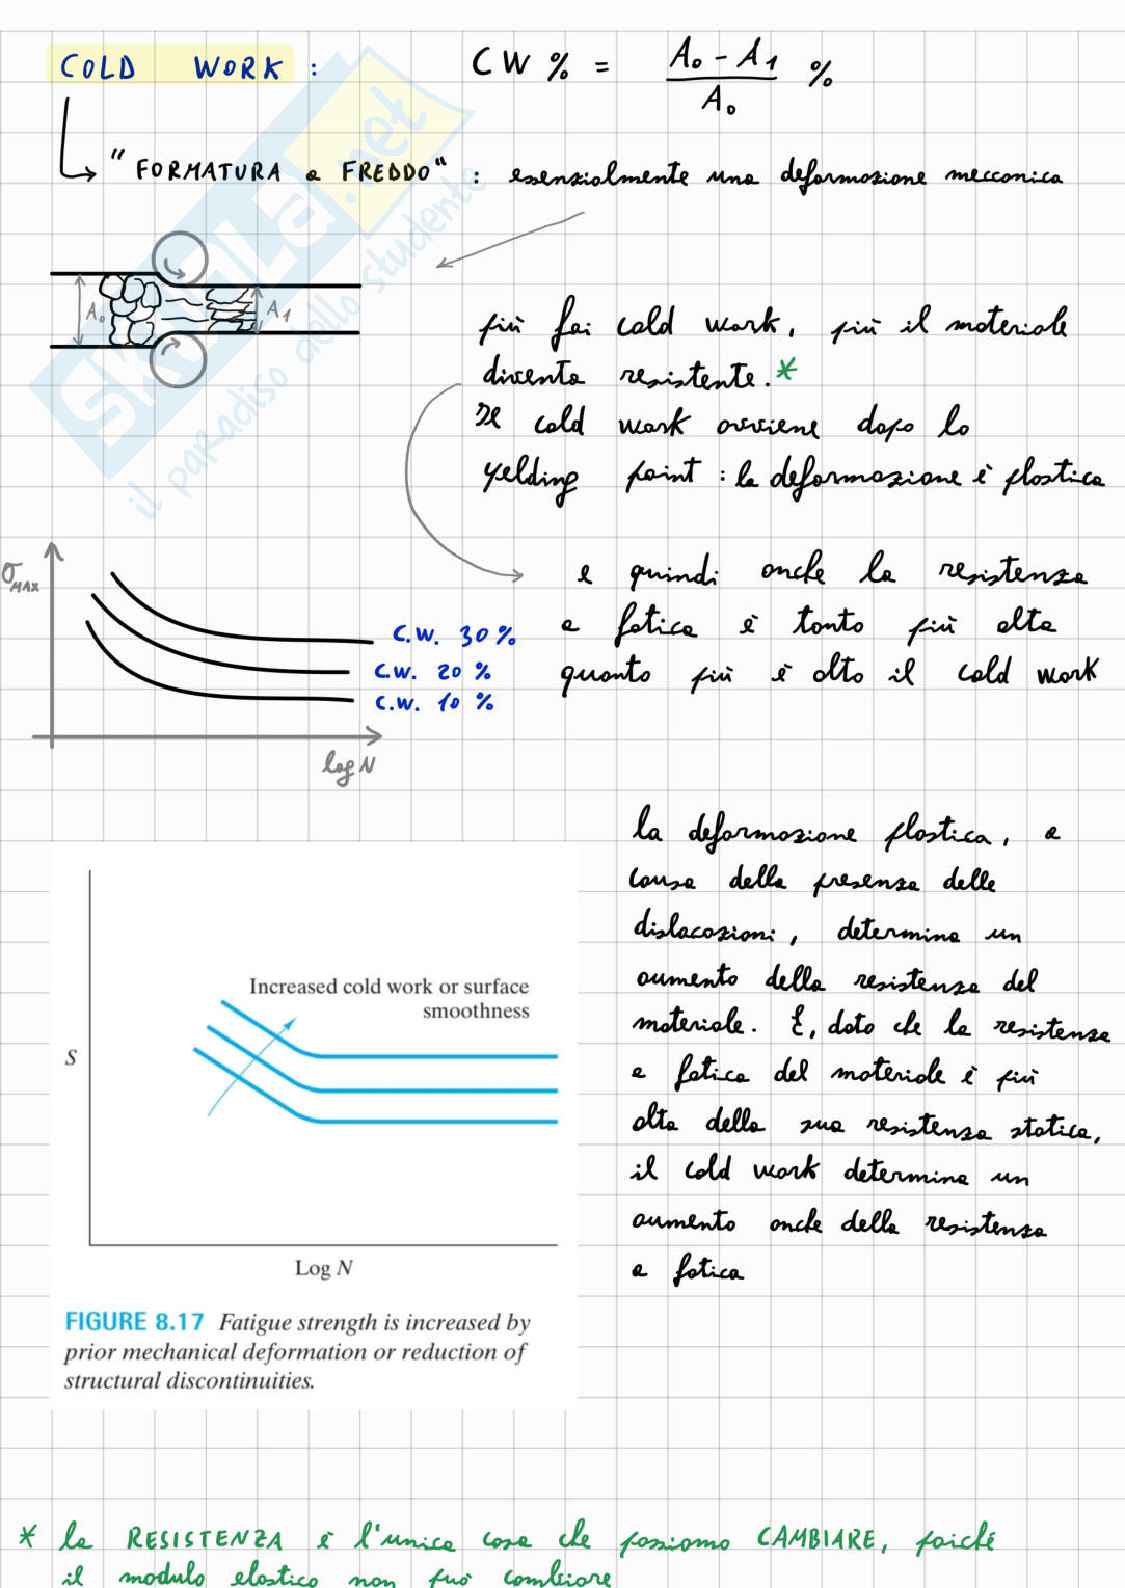 COLD WORK : CW % = A₀ - A₁ / A₀ %
"FORMATURA a FREDDO" : essenzialmente una deformazione meccanica
A₀ A₁
più fai cold work, più il materiale
diventa resistente.*
Il cold work avviene dopo lo
yelding point : la deformazione è plastica
e quindi anche la resistenza
a fatica è tanto più alta
quanto più è alto il cold work
σ MAX
C.W. 30 %
C.W. 20 %
C.W. 10 %
log N
la deformazione plastica, a
causa della presenza delle
dislocazioni, determina un
aumento della resistenza del
materiale. E, dato che la resistenza
a fatica del materiale è più
alta della sua resistenza statica,
il cold work determina un
aumento anche della resistenza
a fatica
Increased cold work or surface
smoothness
S
Log N
FIGURE 8.17 Fatigue strength is increased by
prior mechanical deformation or reduction of
structural discontinuities.
* la RESISTENZA è l'unica cosa che possiamo CAMBIARE, poiché
il modulo elastico non può cambiare
skuola.net
il paradiso dello studente